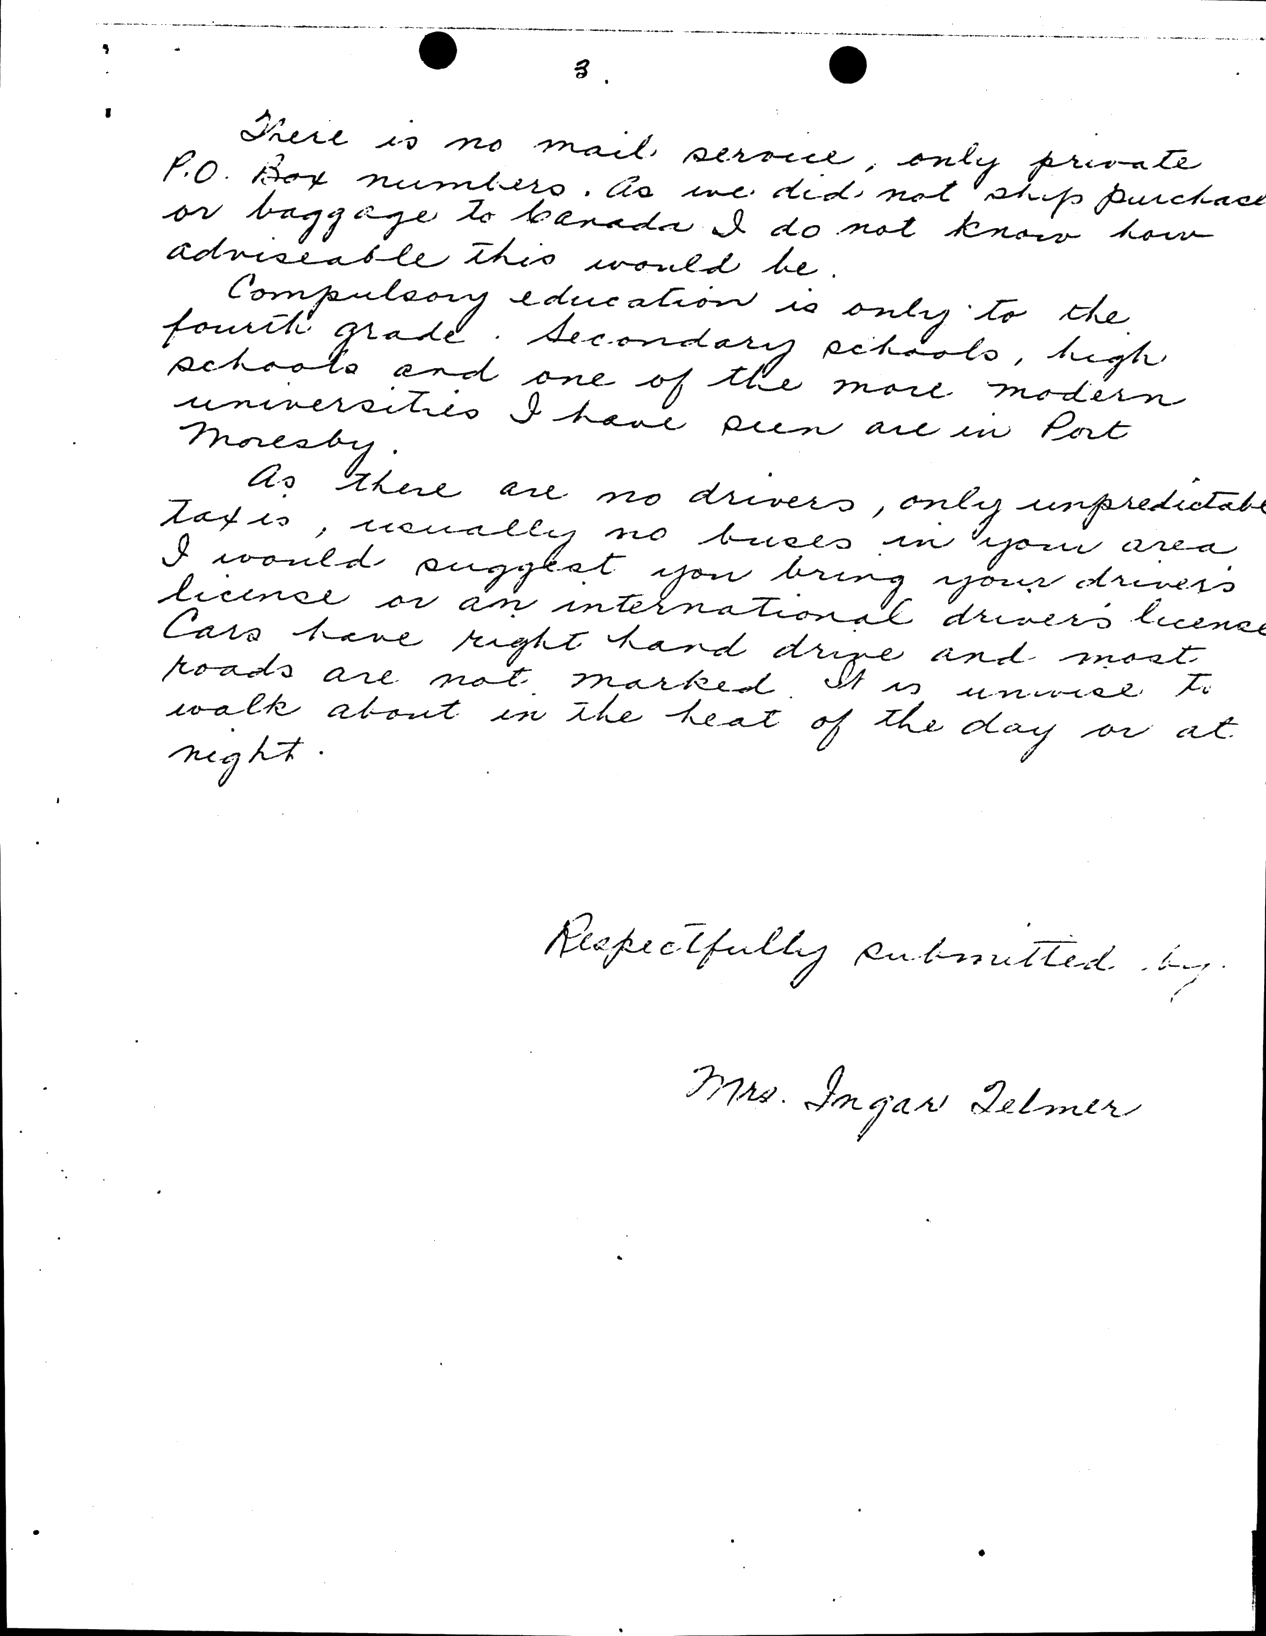 3.
There is no mail service, only private
P.O. Box numbers. As we did not ship purchase
or baggage to Canada I do not know how
adviseable this would be.
Compulsory education is only to the
fourth grade. Secondary schools, high
schools and one of the more modern
universities I have seen are in Port
Moresby.
As there are no drivers, only unpredictabl
taxis, usually no buses in your area
I would suggest you bring your driver's
license or an international driver's license
Cars have right hand drive and most
roads are not marked. It is unwise to
walk about in the heat of the day or at
night.
Respectfully submitted by.
Mrs. Ingar Telmer